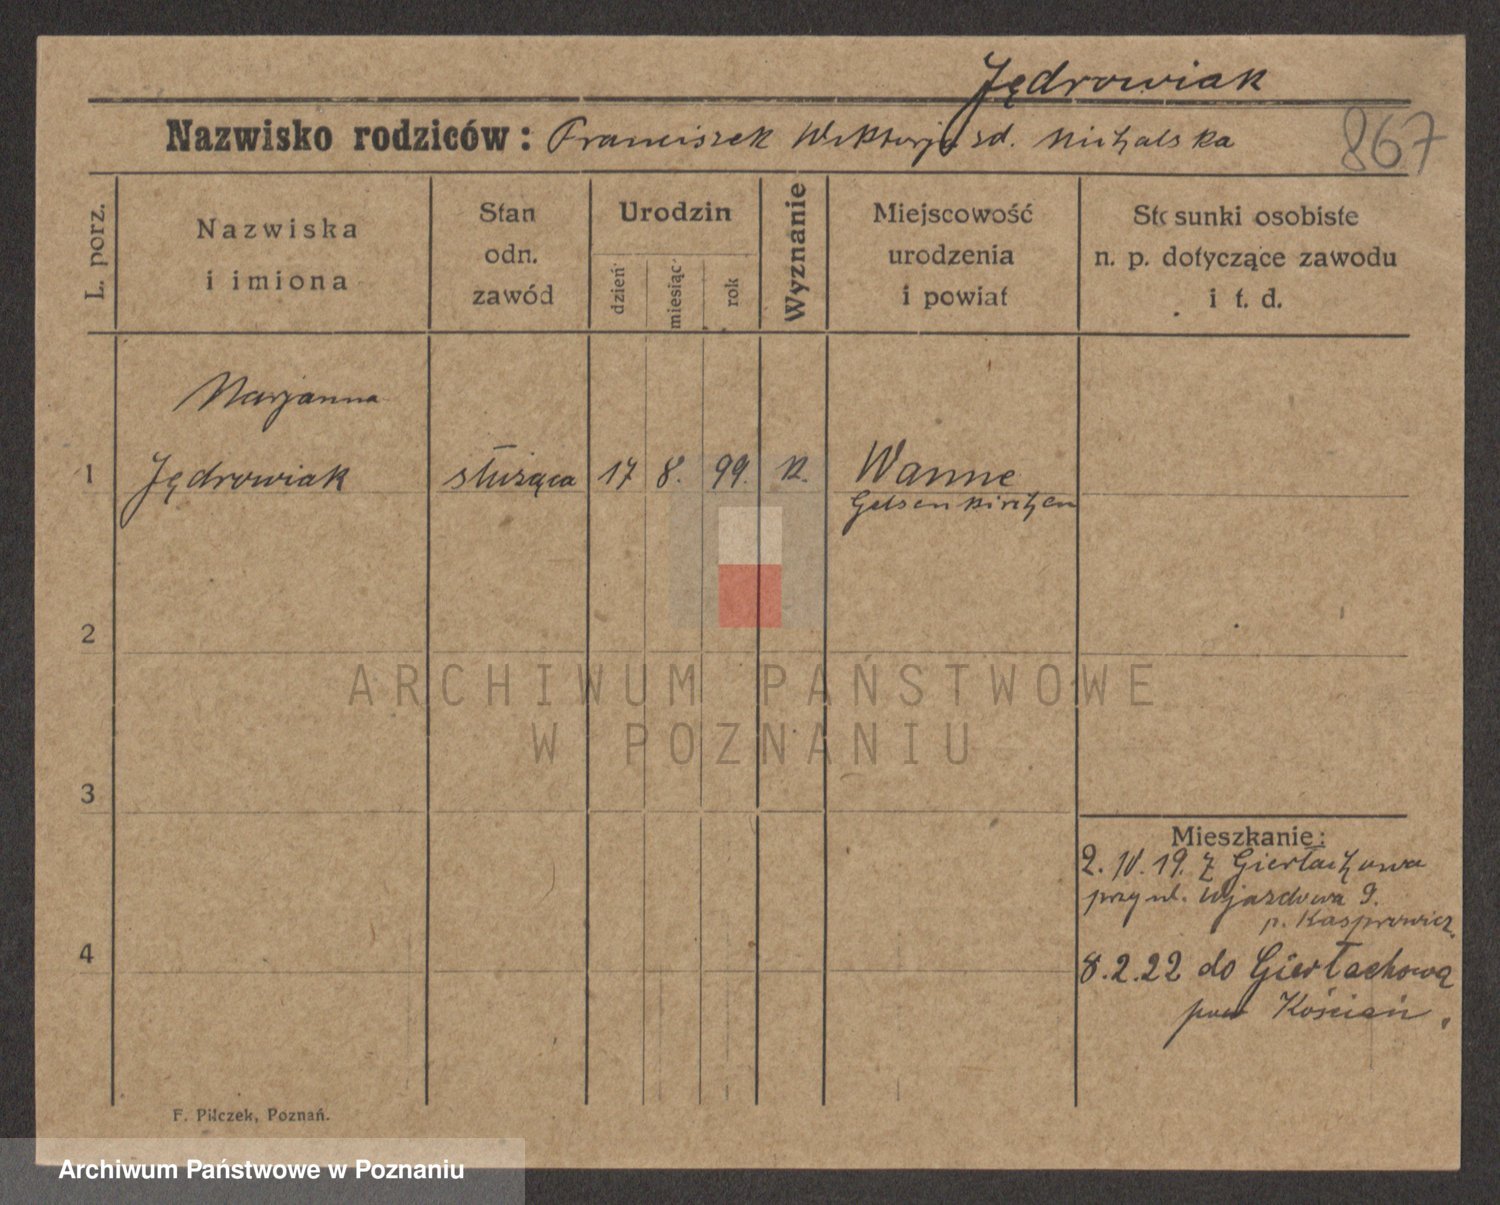 Jędrowiak
Nazwisko rodziców: Franciszek Wiktorja zd. Michalska
867
L. porz.
Nazwiska
i imiona
Stan
odn.
zawód
Urodzin
dzień
miesiąc
rok
Wyznanie
Miejscowość
urodzenia
i powiat
Stosunki osobiste
n. p. dotyczące zawodu
i t. d.
Marjanna
1 Jędrowiak służąca 17 8. 99. k. Wanne
Gelsenkirchen
2
ARCHIWUM PAŃSTWOWE
W POZNANIU
3
Mieszkanie:
2. IV. 19. z Gierłachowa
przy ul. Wjazdowa 9.
p. Kasprowicz.
4
8.2.22 do Gierłachowa
pow Kościan.
F. Pilczek, Poznań.
Archiwum Państwowe w Poznaniu